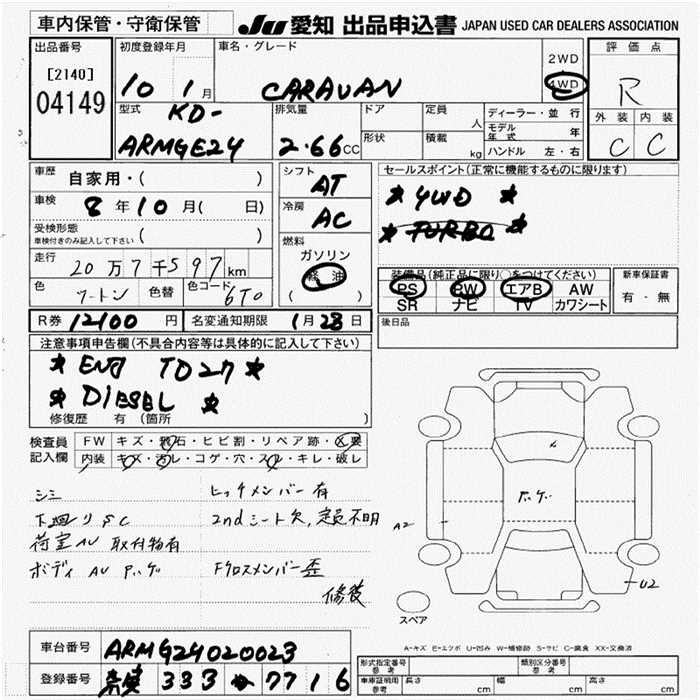 車内保管・守衛保管
JU 愛知 出品申込書 JAPAN USED CAR DEALERS ASSOCIATION
出品番号
[2140]
04149
初度登録年月
10 1月
車名・グレード
CARAVAN
2WD
4WD
評価点
R
外装 内装
C C
型式
KD-
ARMGE24
排気量
2.66 CC
ドア
形状
定員 人
積載 kg
ディーラー・並行
モデル年式 年
ハンドル 左・右
車歴 自家用・( )
車検 8年10月( 日)
受検形態
車検付きのみ記入して下さい ( )
走行 20万7千597km
色 ツートン 色替 色コード 6T0
シフト AT
冷房 AC
燃料
ガソリン
軽油
( )
セールスポイント(正常に機能するものに限ります)
★ 4WD ★
★ TURBO ★
装備品(純正品に限り○をつけてください)
PS PW エアB AW
SR ナビ TV カワシート
新車保証書
有・無
R券 12100 円 名変通知期限 1月28日
後日品
注意事項申告欄(不具合内容等は具体的に記入して下さい)
★ ENJ TD27 ★
★ DIESEL ★
修復歴 有(箇所 )
検査員記入欄
FW キズ・飛石・ヒビ割・リペア跡・×要
内装 キズ・汚レ・コゲ・穴・スレ・キレ・破レ
シミ ヒッチメンバー有
下廻りSC 2ndシート欠,定員不明
荷室AU 取付物有
ボディ AU Fクロスメンバー歪
修復
A2
U2
スペア
A-キズ E-エクボ U-凹み W-補修跡 S-サビ C-腐食 XX-交換済
車台番号 ARMG24020023
登録番号 333 7716
形式指定番号 参考
類別区分番号 参考
車庫証明 参考 長さ cm 幅 cm 高さ cm